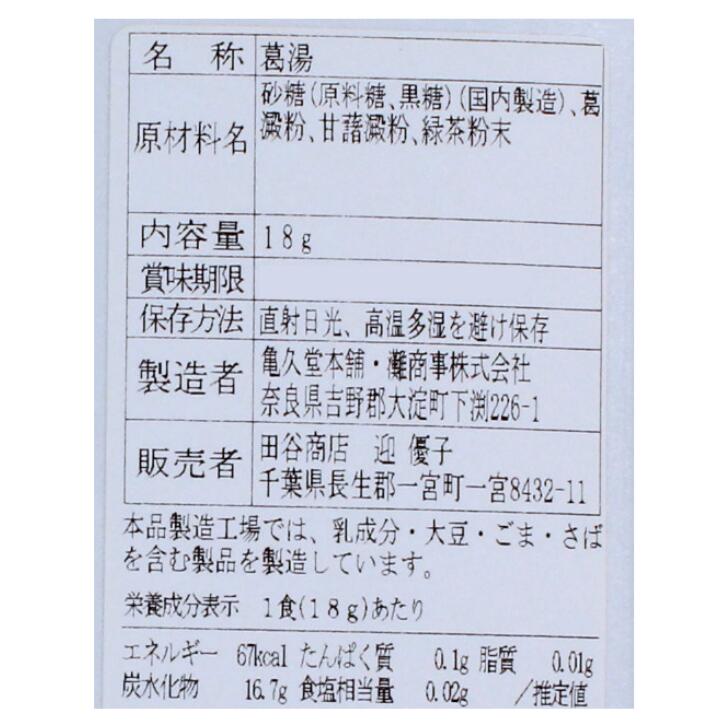 名称 葛湯
原材料名 砂糖(原料糖、黒糖)(国内製造)、葛
澱粉、甘藷澱粉、緑茶粉末
内容量 18g
賞味期限
保存方法 直射日光、高温多湿を避け保存
製造者 亀久堂本舗・灘商事株式会社
奈良県吉野郡大淀町下渕226-1
販売者 田谷商店 迎 優子
千葉県長生郡一宮町一宮8432-11
本品製造工場では、乳成分・大豆・ごま・さば
を含む製品を製造しています。
栄養成分表示 1食(18g)あたり
エネルギー 67kcal たんぱく質 0.1g 脂質 0.01g
炭水化物 16.7g 食塩相当量 0.02g /推定値